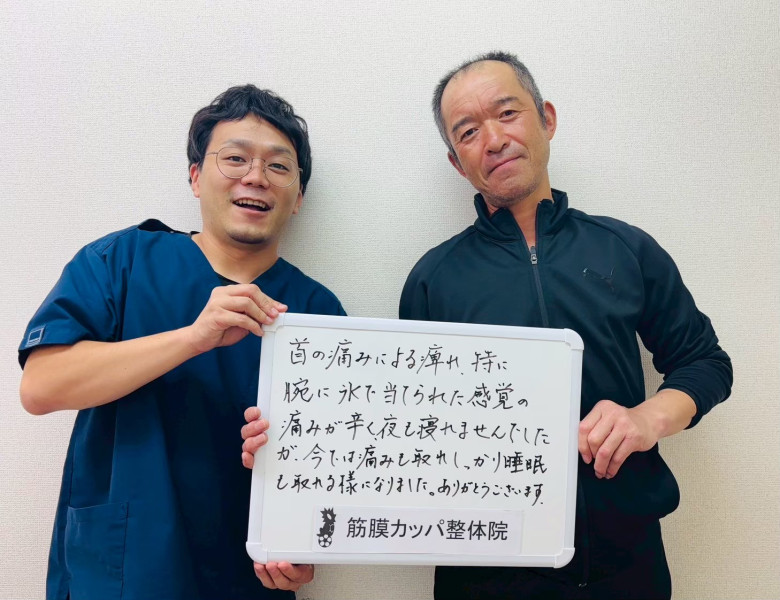 首の痛みによる痺れ、特に
腕に氷で当てられた感覚の
痛みが辛く、夜も寝れませんでした
が、今では痛みも取れしっかり睡眠
も取れる様になりました。ありがとうございます。
筋膜カッパ整体院